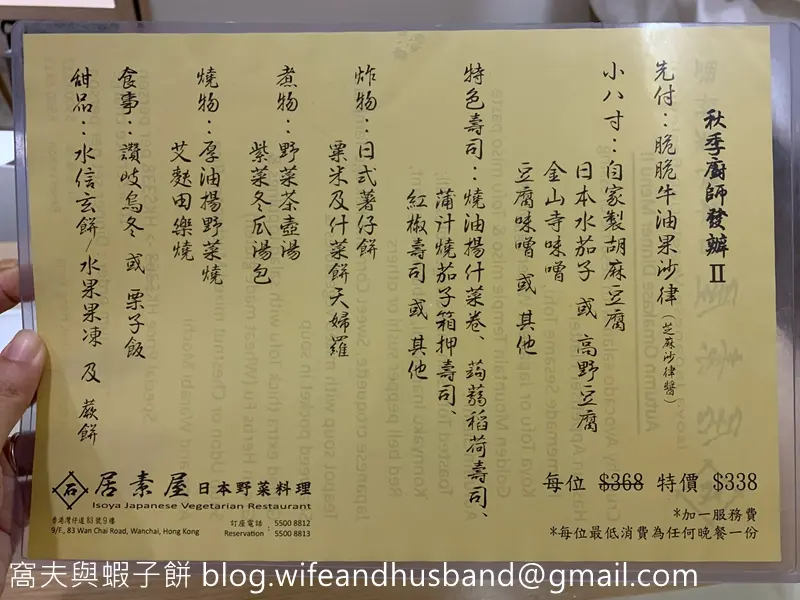 秋季廚師發辦 II
先付：脆脆牛油果沙律（芝麻沙律醬）
小八寸：自家製胡麻豆腐
日本水茄子 或 高野豆腐
金山寺味噌
豆腐味噌 或 其他
特色壽司：燒油揚什菜卷、蒟蒻稻荷壽司、
蒲汁燒茄子箱押壽司、
紅椒壽司 或 其他
炸物：日式薯仔餅
粟米及什菜餅天婦羅
煮物：野菜茶壺湯
紫菜冬瓜湯包
燒物：厚油揚野菜燒
艾麩田樂燒
食事：讚岐烏冬 或 栗子飯
甜品：水信玄餅/水果果凍 及 蕨餅
每位 $368 特價 $338
*加一服務費
*每位最低消費為任何晚餐一份
石 居素屋 日本野菜料理
Isoya Japanese Vegetarian Restaurant
香港灣仔道83號9樓
9/F., 83 Wan Chai Road, Wanchai, Hong Kong
訂座電話 : 5500 8812
Reservation : 5500 8813
窩夫與蝦子餅 blog.wifeandhusband@gmail.com